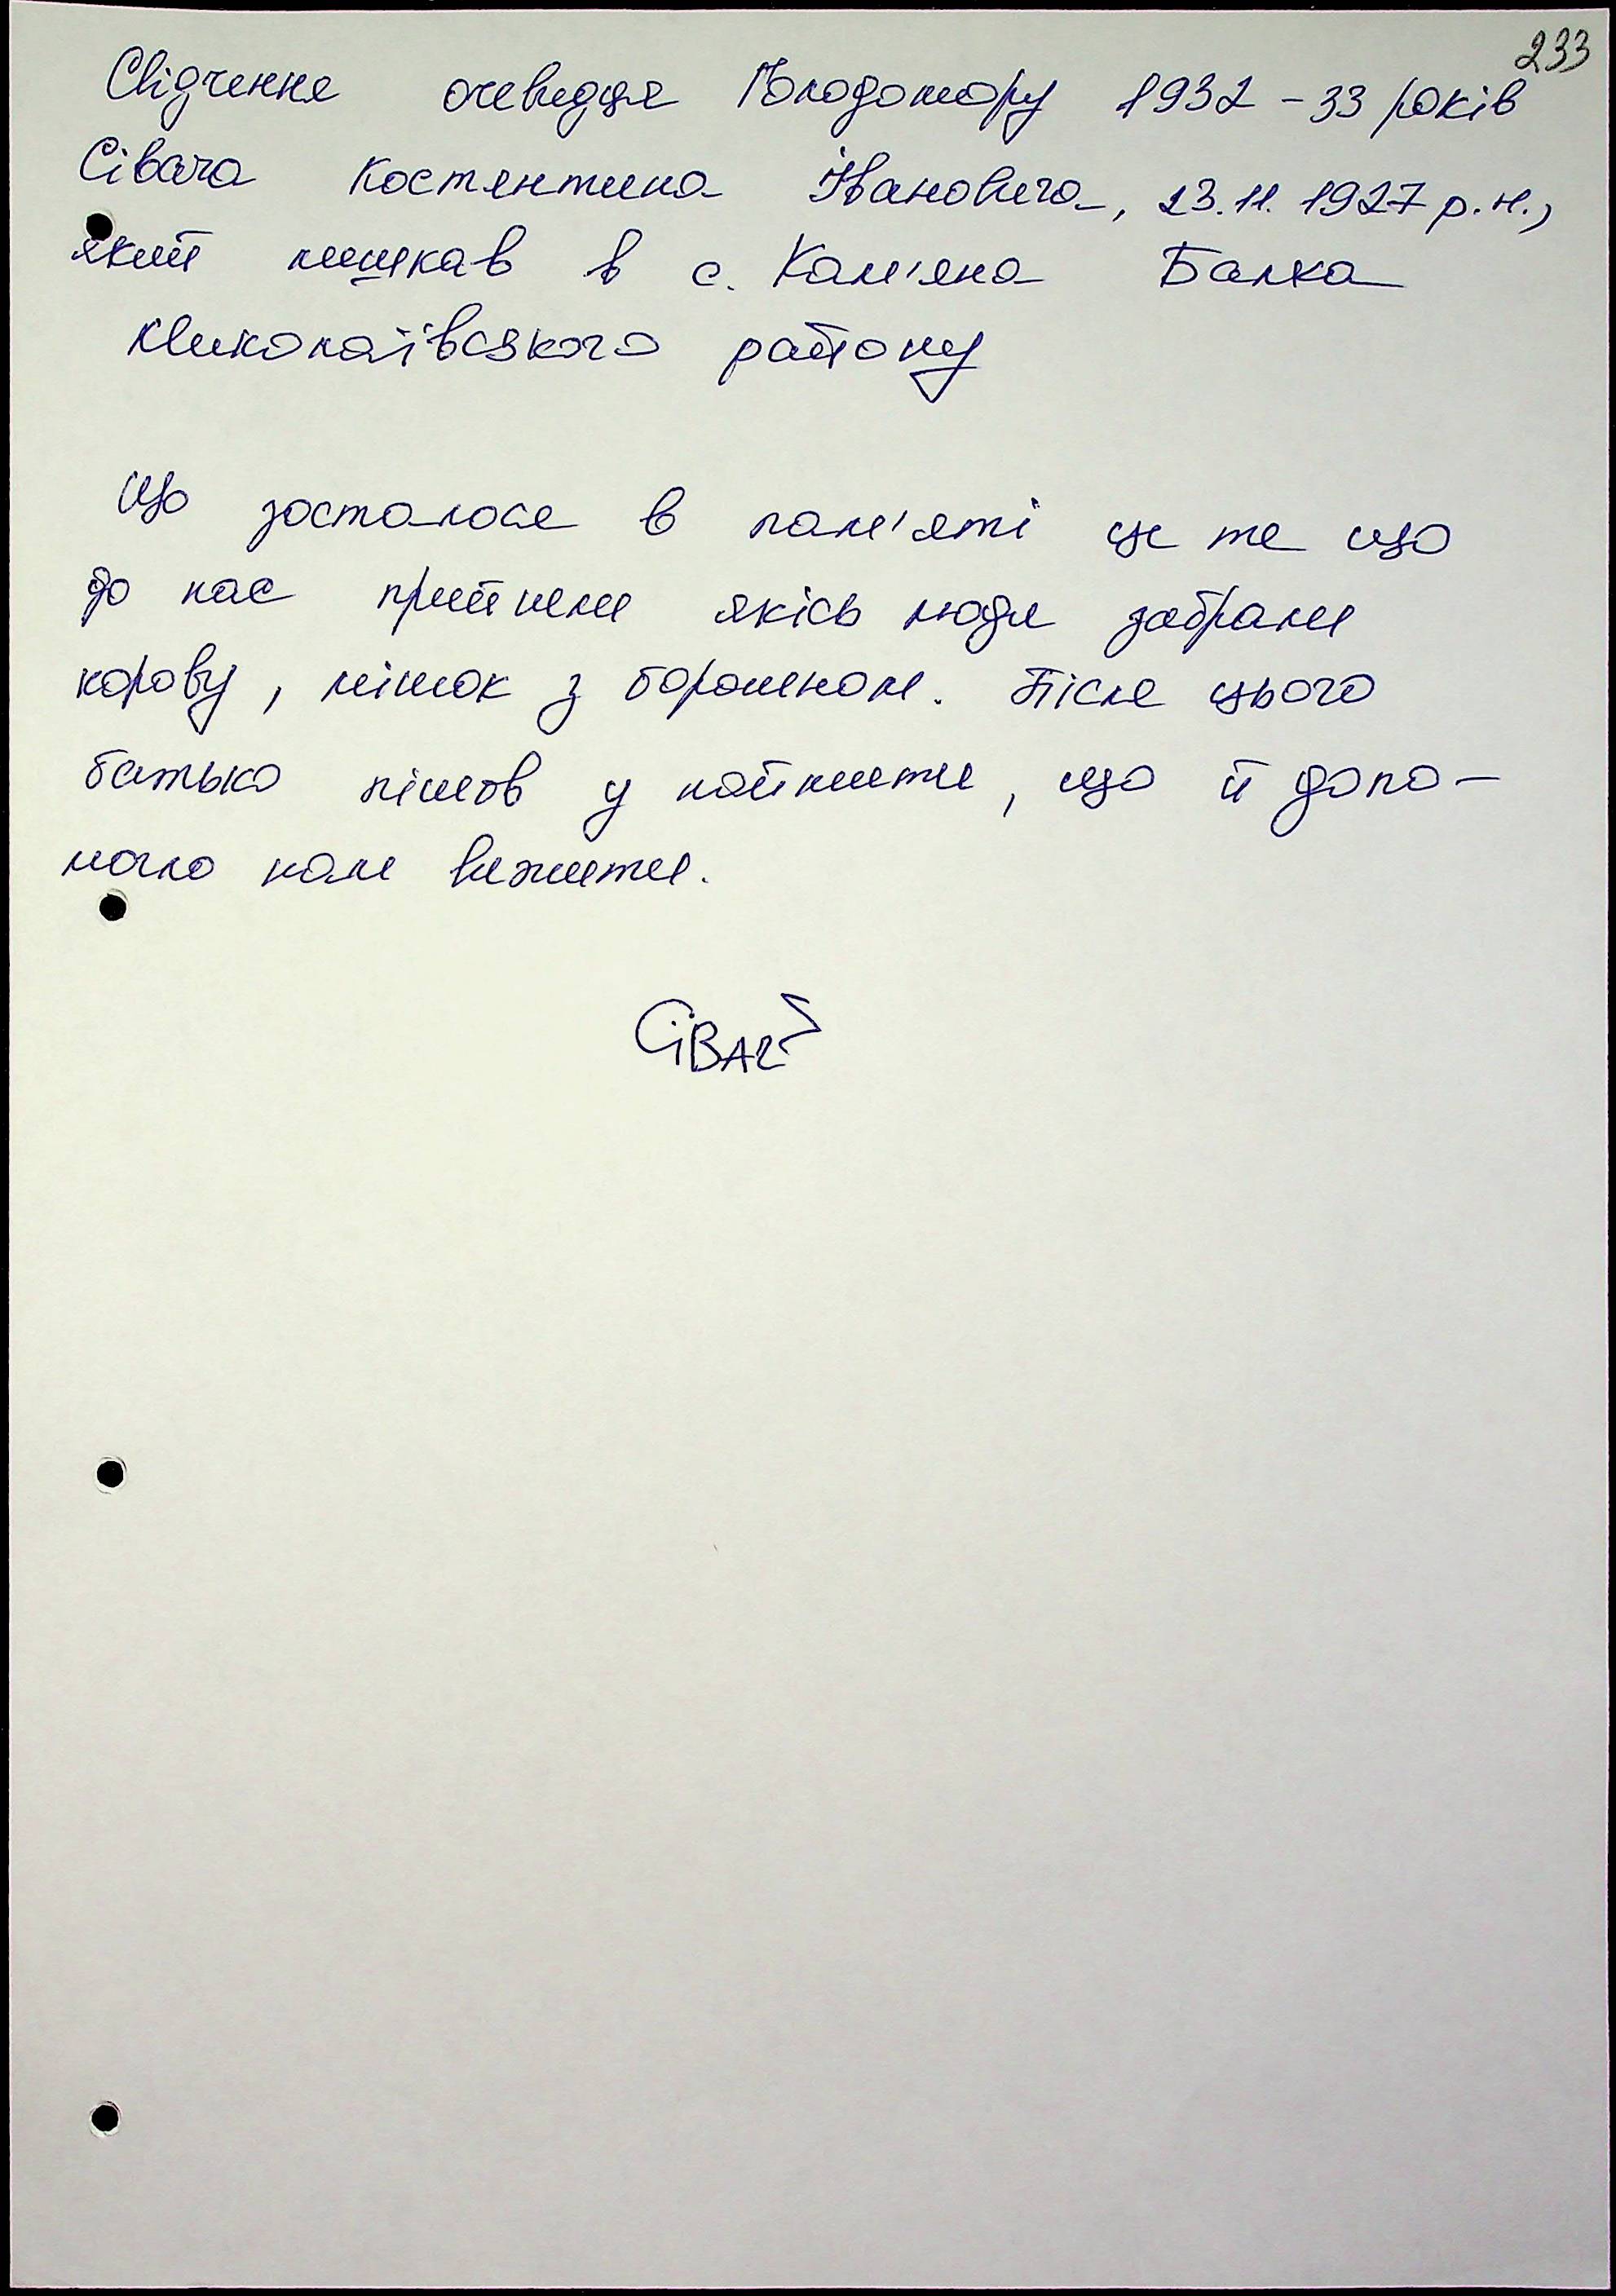 233
Свідчення очевидця Голодомору 1932-33 років
Сівача Костянтина Івановича, 23.11.1927 р.н.,
який мешкав в с. Кам'яна Балка
Миколаївського району
Що зосталося в пам'яті це те що
до нас прийшли якісь люди забрали
корову, мішок з борошном. Після цього
батько пішов у найкити, що й допо-
могло нам вижити.
Сівач